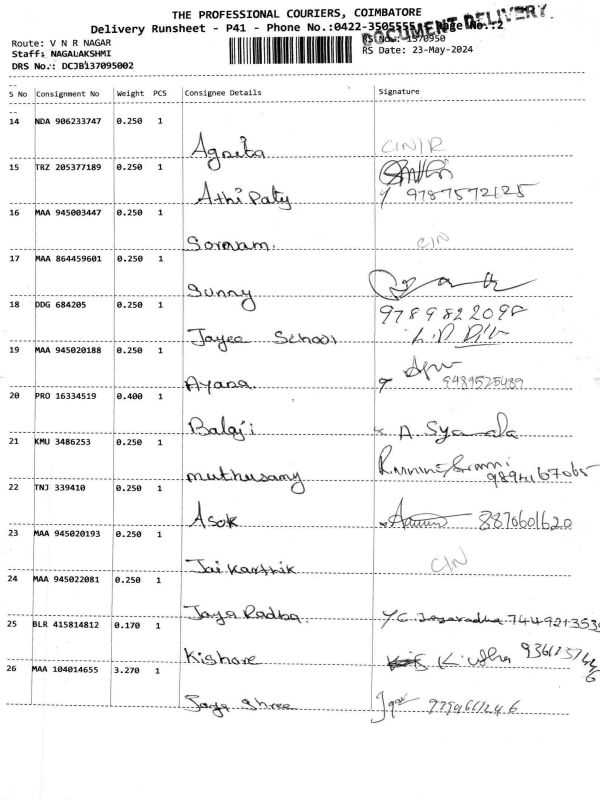 THE PROFESSIONAL COURIERS, COIMBATORE
Delivery Runsheet - P41 - Phone No.:0422-3505555 Page No.:2
DOCUMENT DELIVERY.
Route: V N R NAGAR RS No.: 1370950
Staff: NAGALAKSHMI RS Date: 23-May-2024
DRS No.: DCJB137095002
S No Consignment No Weight PCS Consignee Details Signature
14 NDA 906233747 0.250 1
Agnita CIN/R
15 TRZ 205377189 0.250 1
Athi Paty 9787572125
16 MAA 945003447 0.250 1
CIN
17 MAA 864459601 0.250 1
Sunny
18 DDG 684205 0.250 1
9789822098
Jayee School
19 MAA 945020188 0.250 1
Ayana 9489525489
20 PRO 16334519 0.400 1
Balaji A. Syamala
21 KMU 3486253 0.250 1
muthusamy
22 TNJ 339410 0.250 1
Asok 8870601620
23 MAA 945020193 0.250 1
Jai Karthik CIN
24 MAA 945022081 0.250 1
Jaya Radha Y.C. Jayaradha
25 BLR 415814812 0.170 1
Kishore
26 MAA 104014655 3.270 1
Jaya Shree